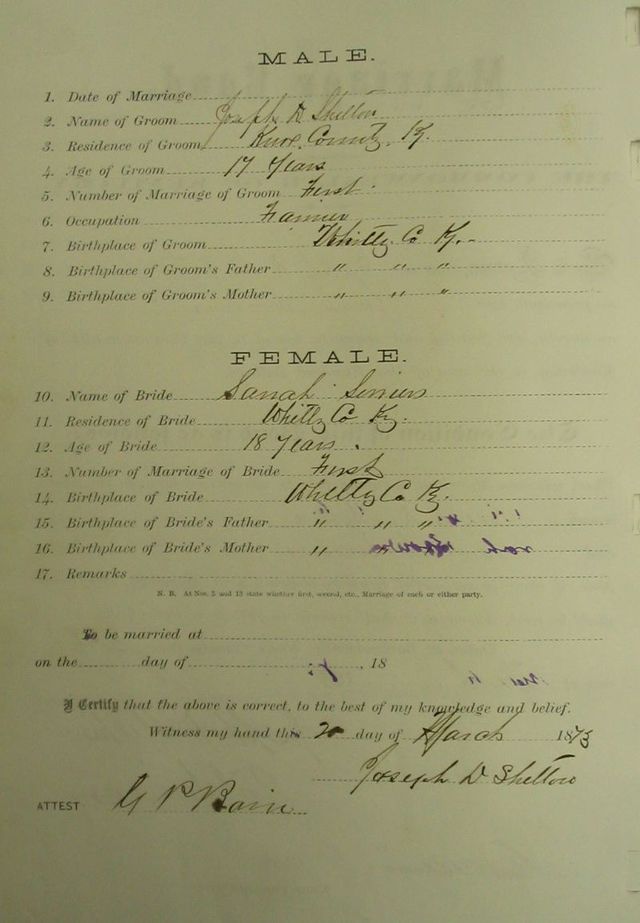 MALE.
1. Date of Marriage
2. Name of Groom Joseph D Shelton
3. Residence of Groom Knox County Ky.
4. Age of Groom 17 Years
5. Number of Marriage of Groom First
6. Occupation Farmer
7. Birthplace of Groom Whitly Co Ky.
8. Birthplace of Groom's Father " " "
9. Birthplace of Groom's Mother " " "
FEMALE.
10. Name of Bride Sarrah
11. Residence of Bride Whitly Co Ky.
12. Age of Bride 18 Years.
13. Number of Marriage of Bride First
14. Birthplace of Bride Whitly Co Ky.
15. Birthplace of Bride's Father " " "
16. Birthplace of Bride's Mother " "
17. Remarks
N. B. At Nos. 5 and 13 state whether first, second, etc., Marriage of each or either party.
To be married at
on the day of , 18
I Certify that the above is correct, to the best of my knowledge and belief.
Witness my hand this day of March 1873
Joseph D Shelton
ATTEST G P Bain